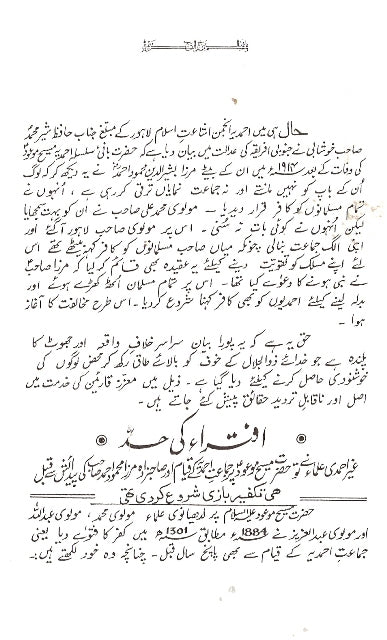 حال ہی میں احمدیہ انجمن اشاعتِ اسلام لاہور کے مبلغ جناب حافظ شیر محمد
صاحب خوشابی نے جنوبی افریقہ کی عدالت میں بیان دیا ہے کہ حضرت بانی سلسلہ احمدیہ مسیح موعودؑ
کی وفات کے بعد ۱۹۱۴ء میں ان کے بیٹے مرزا بشیر الدین محمود احمد نے یہ دیکھ کر کہ لوگ
اُن کے باپ کو نہیں مانتے اور نہ جماعت نمایاں ترقی کر رہی ہے ، اُنہوں نے
تمام مسلمانوں کو کافر قرار دیدیا ۔ مولوی محمد علی صاحب نے ان کو بہت سمجھایا
لیکن اُنہوں نے کوئی بات نہ سُنی ۔ اس پر مولوی صاحب لاہور آگئے اور
اپنی الگ جماعت بنالی ۔ چونکہ میاں صاحب مسلمانوں کو کافر کہہ بیٹھے تھے اس
لئے اپنے مسلک کو تقویت دینے کیلئے یہ عقیدہ بھی قائم کر لیا کہ مرزا صاحبؑ
نے نبی ہونے کا دعوےٰ کیا تھا ۔ اس پر تمام مسلمان اُٹھ کھڑے ہوئے اور
بدلہ لینے کیلئے احمدیوں کو بھی کافر کہنا شروع کر دیا ۔ اس طرح مخالفت کا آغاز
ہوا ۔
حق یہ ہے کہ یہ پورا بیان سراسر خلافِ واقعہ اور جھوٹ کا
پلندہ ہے جو خدائے ذوالجلال کے خوف کو بالائے طاق رکھ کر محض لوگوں کی
خوشنودی حاصل کرنے کیلئے دیا گیا ہے ۔ ذیل میں معزز قارئین کی خدمت میں
اصل اور ناقابلِ تردید حقائق پیش کئے جاتے ہیں ۔
افتراء کی حد
غیر احمدی علماء نے تو حضرت مسیح موعودؑ پر جماعت احمدیہ کے قیام اور صاحبزادہ مرزا محمود احمد صاحب کی پیدائش سے قبل
ہی تکفیر بازی شروع کر دی تھی
حضرت مسیح موعود علیہ السلام پر لدھیانوی علماء مولوی محمد ، مولوی عبداللہ
اور مولوی عبدالعزیز نے 1884ء مطابق 1301ھ میں کفر کا فتویٰ دیا یعنی
جماعت احمدیہ کے قیام سے بھی پانچ سال قبل ۔ چنانچہ وہ خود لکھتے ہیں :۔